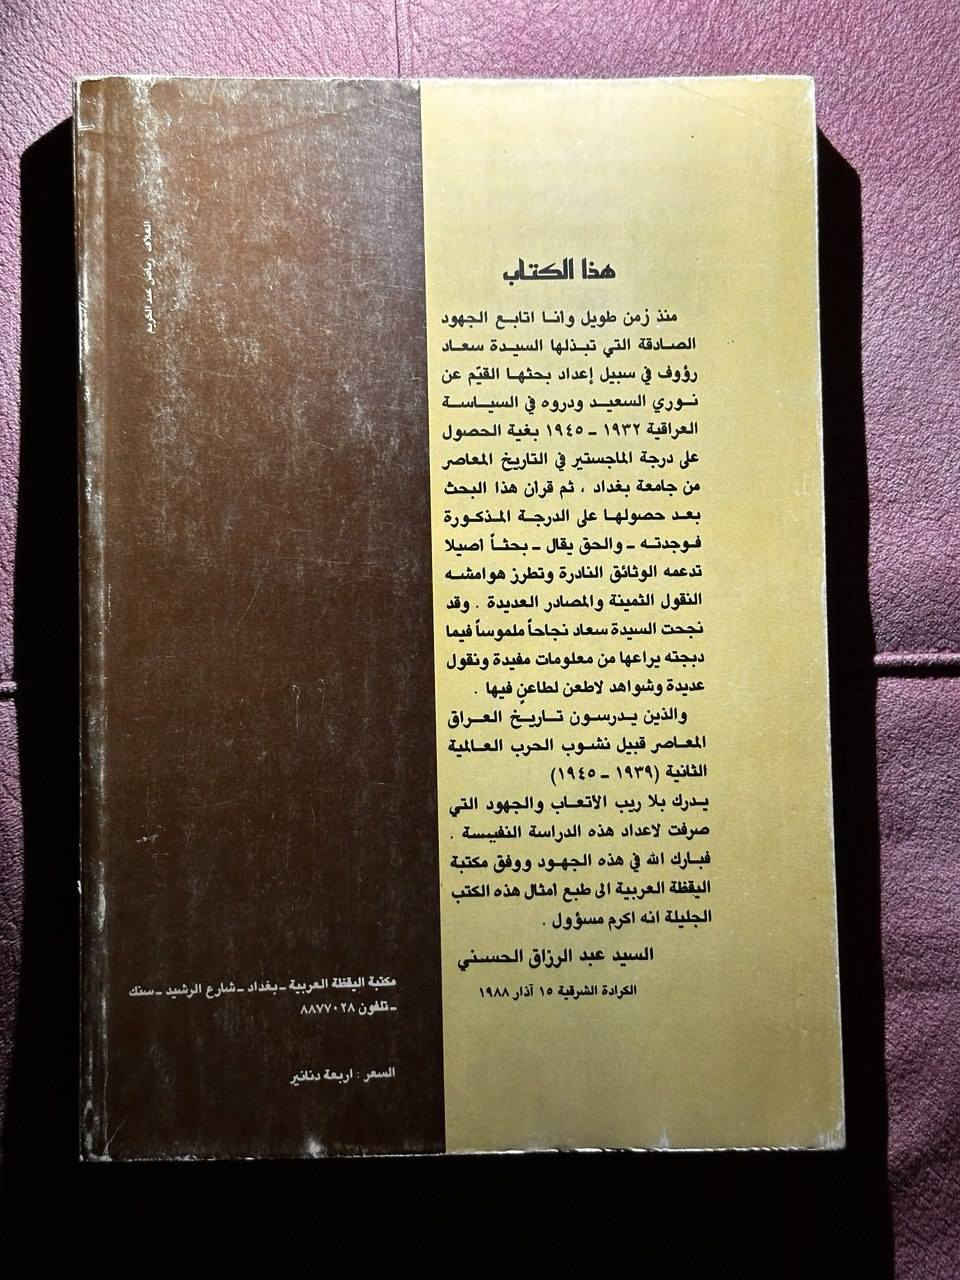 هذا الكتاب
منذ زمن طويل وانا اتابع الجهود
الصادقة التي تبذلها السيدة سعاد
رؤوف في سبيل إعداد بحثها القيّم عن
نوري السعيد ودوره في السياسة
العراقية ١٩٣٢ ـ ١٩٤٥ بغية الحصول
على درجة الماجستير في التاريخ المعاصر
من جامعة بغداد ، ثم قرأن هذا البحث
بعد حصولها على الدرجة المذكورة
فوجدته ـ والحق يقال ـ بحثاً اصيلا
تدعمه الوثائق النادرة وتطرز هوامشه
النقول الثمينة والمصادر العديدة . وقد
نجحت السيدة سعاد نجاحاً ملموساً فيما
دبجته يراعها من معلومات مفيدة ونقول
عديدة وشواهد لاطعن لطاعنٍ فيها .
والذين يدرسون تاريخ العراق
المعاصر قبيل نشوب الحرب العالمية
الثانية (١٩٣٩ ـ ١٩٤٥)
يدرك بلا ريب الأتعاب والجهود التي
صرفت لاعداد هذه الدراسة النفيسة .
فبارك الله في هذه الجهود ووفق مكتبة
اليقظة العربية الى طبع امثال هذه الكتب
الجليلة انه اكرم مسؤول .
السيد عبد الرزاق الحسني
الكرادة الشرقية ١٥ آذار ١٩٨٨
الغلاف رياض عبد الكريم
مكتبة اليقظة العربية ـ بغداد ـ شارع الرشيد ـ سنك
ـ تلفون ٨٨٧٧٠٢٨
السعر : اربعة دنانير